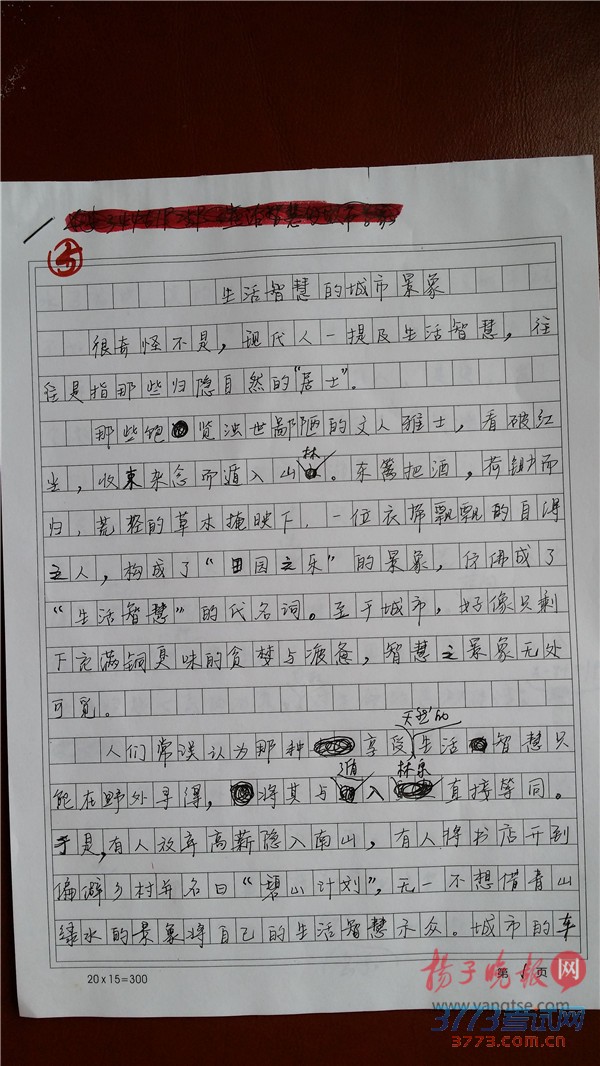 5
生活智慧的城市景象
很奇怪不是，现代人一提及生活智慧，往
往是指那些归隐自然的“居士”。
那些饱览浊世鄙陋的文人雅士，看破红
尘，收束杂念而遁入山林。东篱把酒，荷锄而
归，荒径的草木掩映下，一位衣带飘飘的自得
之人，构成了“田园之乐”的景象，仿佛成了
“生活智慧”的代名词。至于城市，好像只剩
下充满铜臭味的贪婪与疲惫，智慧之景象无处
可觅。
人们常误认为那种享受天然的生活智慧只
能在野外寻得，将其与遁入林泉直接等同。
于是，有人放弃高薪隐入南山，有人将书店开到
偏僻乡村并名曰“碧山计划”，无一不想借青山
绿水的景象将自己的生活智慧示众。城市的车
20×15=300
第 1 页
扬子晚报网
www.yangtse.com
3773考试网
3773.com.cn